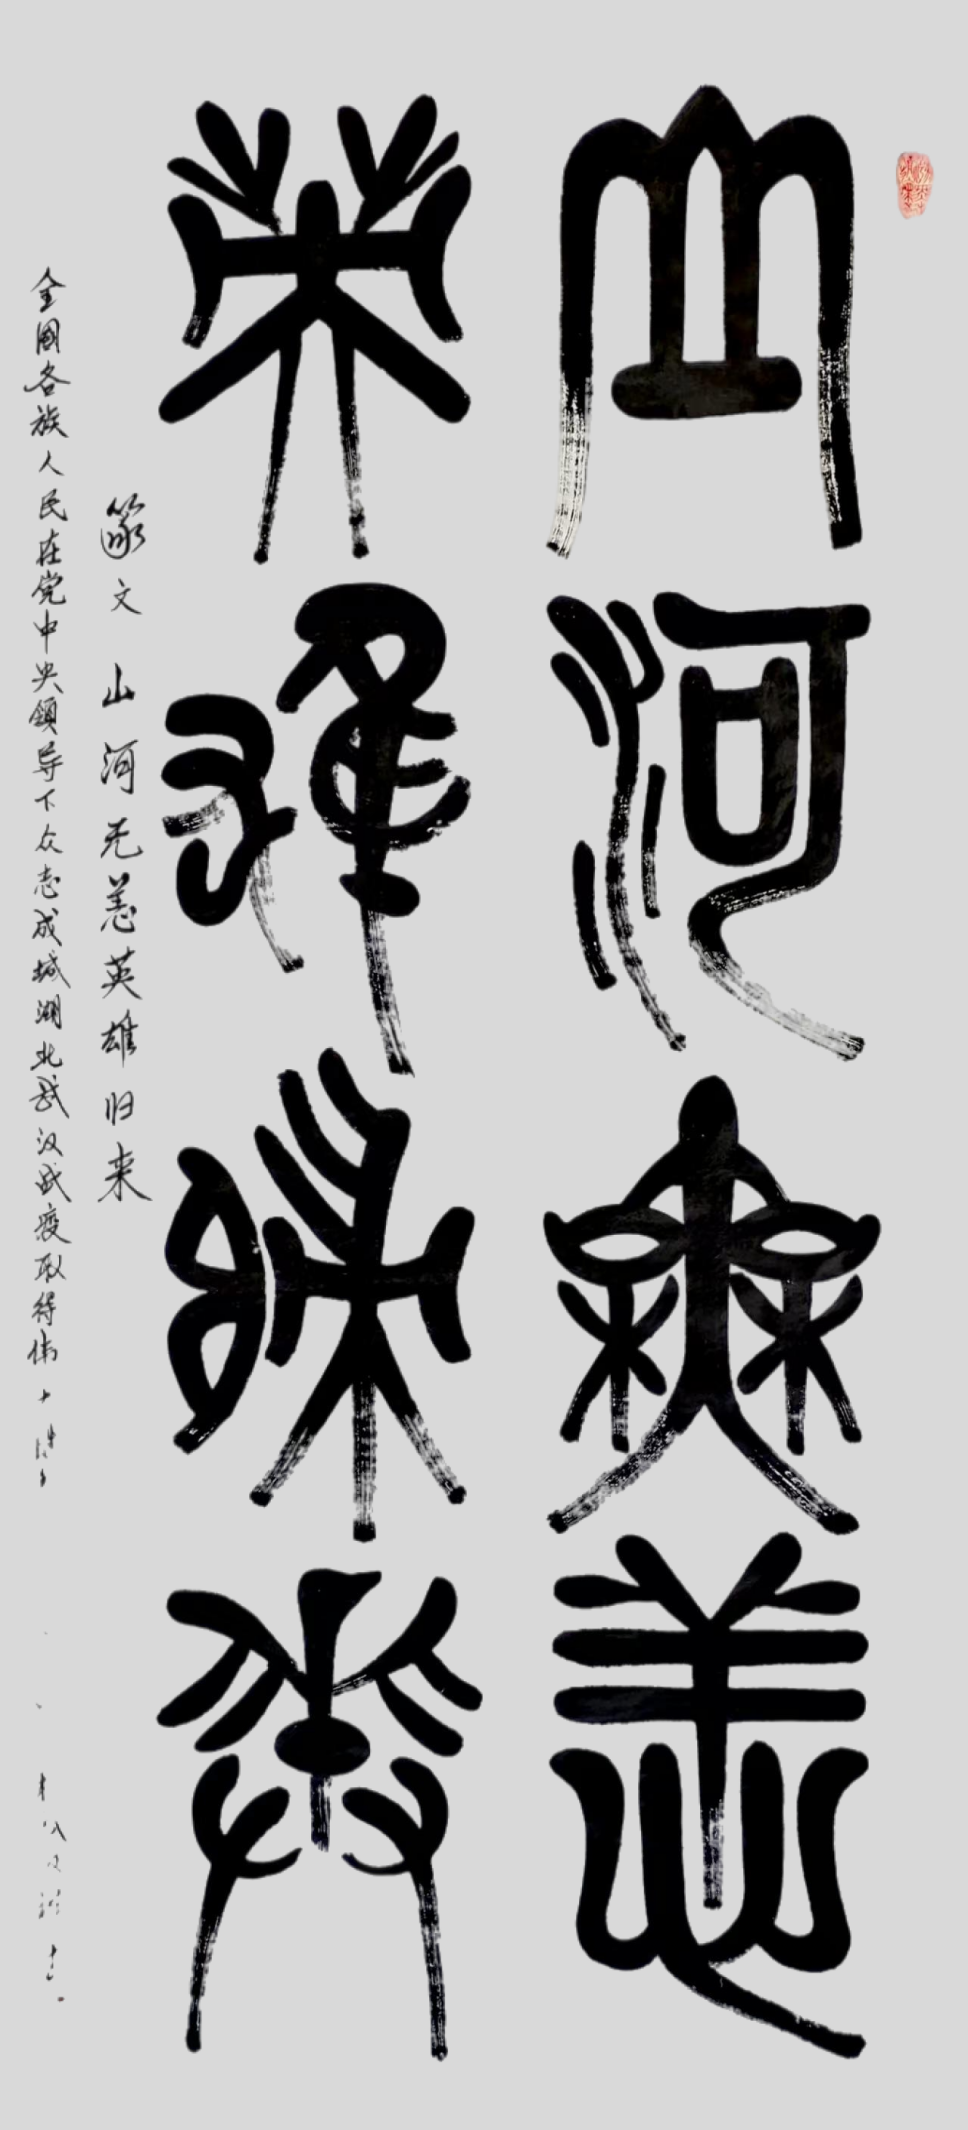 山河無恙
英雄歸來
篆文 山河无恙英雄归来
全國各族人民在党中央領导下众志成城湖北武汉战疫取得伟大